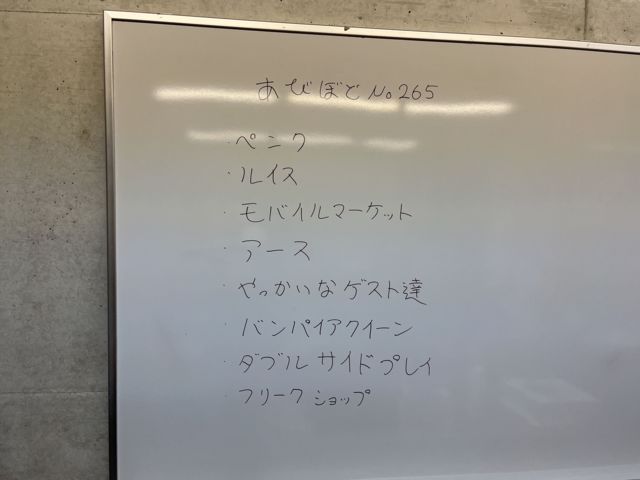 あびぼど No265
・ペンク
・ルイス
・モバイルマーケット
・アース
・やっかいなゲスト達
・バンパイアクイーン
・ダブルサイドプレイ
・フリークショップ